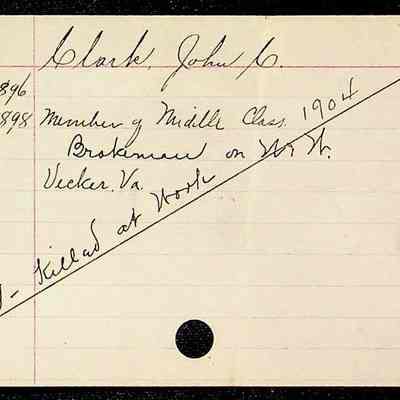 Clark, John C.
1896
1898 Member of Middle Class. 1904
Brakeman on N & W.
Vicker, Va.
- Killed at Work